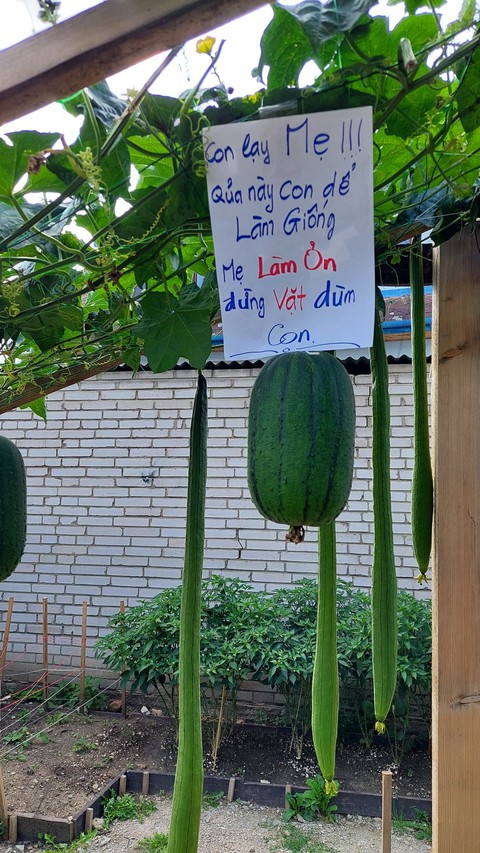 Con lạy Mẹ !!!
Qủa này Con để
Làm Giống
Mẹ Làm Ơn
đừng Vặt dùm
Con.